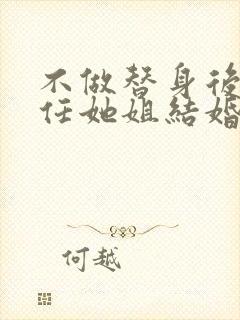 不做替身後
任她姐結婚
何越